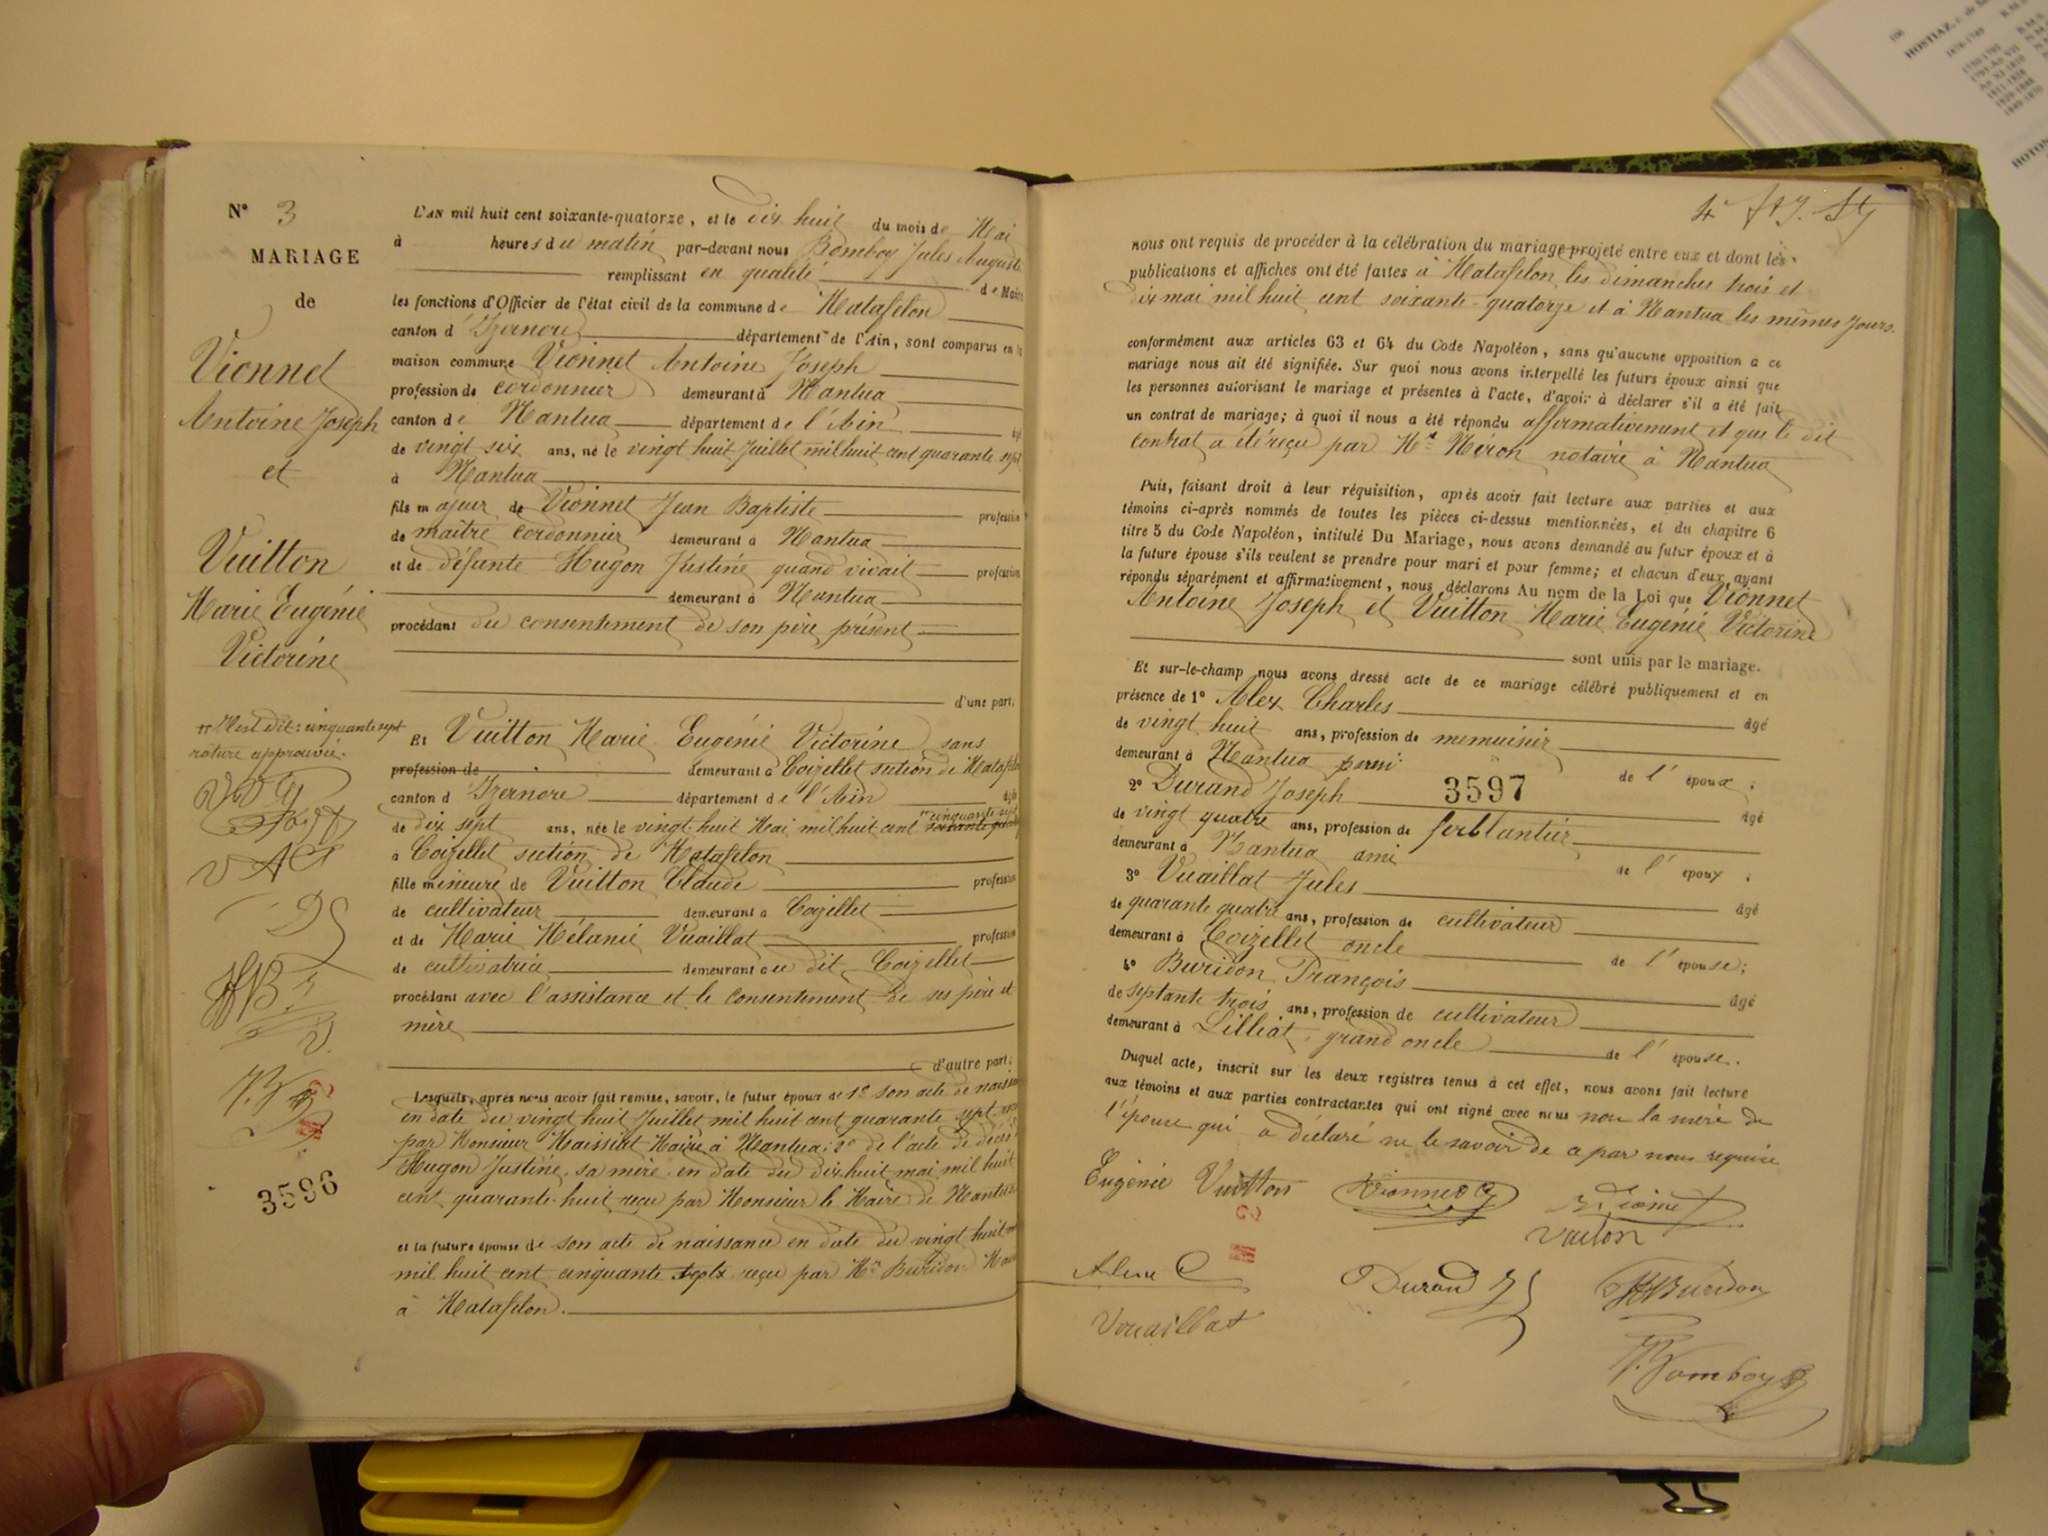 N° 3
MARIAGE
de
Vionnet
Antoine Joseph
et
Vuitton
Marie Eugénie
Victorine
Il est dit: cinquante sept
rature approuvée.
3596
L'AN mil huit cent soixante-quatorze, et le dix huit du mois de Mai
à heures du matin par-devant nous Bomboy Jules Auguste
remplissant en qualité de Maire
les fonctions d'Officier de l'état civil de la commune de Matafelon
canton d'Izernore département de l'Ain, sont comparus en la
maison commune Vionnet Antoine Joseph
profession de cordonnier demeurant à Nantua
canton de Nantua département de l'Ain âgé
de vingt six ans, né le vingt huit Juillet mil huit cent quarante sept
à Nantua
fils majeur de Vionnet Jean Baptiste profession
de maître cordonnier demeurant à Nantua
et de défunte Hugon Justine quand vivait profession
demeurant à Nantua
procédant du consentement de son père présent
d'une part;
Et Vuitton Marie Eugénie Victorine sans
profession de demeurant à Coizellet section de Matafelon
canton d'Izernore département de l'Ain âgée
de dix sept ans, née le vingt huit Mai mil huit cent cinquante sept
à Coizellet section de Matafelon
fille mineure de Vuitton Claude profession
de cultivateur demeurant à Coizellet
et de Marie Mélanie Vuaillat profession
de cultivatrice demeurant au dit Coizellet
procédant avec l'assistance et le consentement de ses père et
mère
d'autre part;
Lesquels, après nous avoir fait remise, savoir, le futur époux de 1° son acte de naissance
en date du vingt huit Juillet mil huit cent quarante sept reçu
par Monsieur Maissiat Maire à Nantua; 2° de l'acte de décès
Hugon Justine, sa mère en date du dix huit mai mil huit
cent quarante-huit reçu par Monsieur le Maire de Nantua
et la future épouse de son acte de naissance en date du vingt huit mai
mil huit cent cinquante sept reçu par Mr Buridon Maire
à Matafelon.
nous ont requis de procéder à la célébration du mariage projeté entre eux et dont les
publications et affiches ont été faites à Matafelon les dimanches trois et
dix mai mil huit cent soixante-quatorze et à Nantua les mêmes jours.
conformément aux articles 63 et 64 du Code Napoléon, sans qu'aucune opposition a ce
mariage nous ait été signifiée. Sur quoi nous avons interpellé les futurs époux ainsi que
les personnes autorisant le mariage et présentes à l'acte, d'avoir à déclarer s'il a été fait
un contrat de mariage; à quoi il nous a été répondu affirmativement et que le dit
contrat a été reçu par Me Néron notaire à Nantua
Puis, faisant droit à leur réquisition, après avoir fait lecture aux parties et aux
témoins ci-après nommés de toutes les pièces ci-dessus mentionnées, et du chapitre 6
titre 5 du Code Napoléon, intitulé Du Mariage, nous avons demandé au futur époux et à
la future épouse s'ils veulent se prendre pour mari et pour femme; et chacun d'eux ayant
répondu séparément et affirmativement, nous déclarons Au nom de la Loi que Vionnet
Antoine Joseph et Vuitton Marie Eugénie Victorine
sont unis par le mariage.
Et sur-le-champ nous avons dressé acte de ce mariage célébré publiquement et en
présence de 1° Alex Charles âgé
de vingt huit ans, profession de menuisier
demeurant à Nantua de l'époux;
2° Durand Joseph 3597 âgé
de vingt quatre ans, profession de ferblantier
demeurant à Nantua ami de l'époux;
3° Vuaillat Jules âgé
de quarante quatre ans, profession de cultivateur
demeurant à Coizellet oncle de l'épouse;
4° Buridon François âgé
de septante trois ans, profession de cultivateur
demeurant à Lilliat, grand oncle de l'épouse.
Duquel acte, inscrit sur les deux registres tenus à cet effet, nous avons fait lecture
aux témoins et aux parties contractantes qui ont signé avec nous non la mère de
l'épouse qui a déclaré ne le savoir de a par nous requise
Eugénie Vuitton Vionnet
Durand Buridon
Vouaillat
Bomboy
HOSTIAZ,